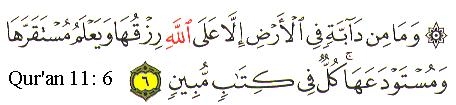 ۞ وَمَا مِن دَآبَّةٍ فِي ٱلْأَرْضِ إِلَّا عَلَى ٱللَّهِ رِزْقُهَا وَيَعْلَمُ مُسْتَقَرَّهَا
وَمُسْتَوْدَعَهَا ۚ كُلٌّ فِي كِتَٰبٍ مُّبِينٍ ٦ Qur'an 11: 6